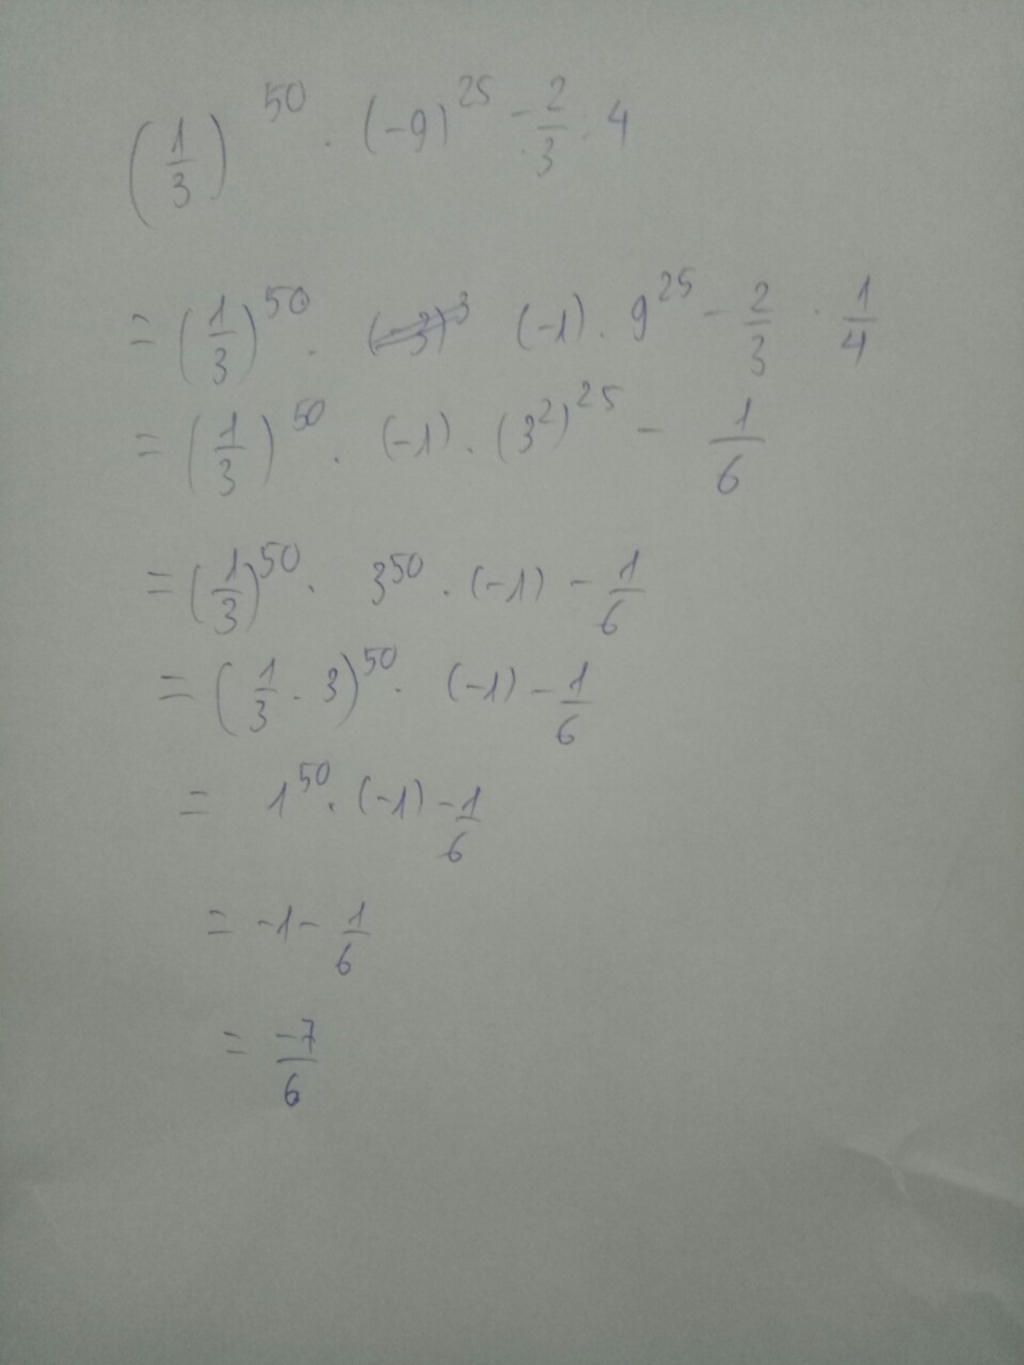 (1/3)^50 . (-9)^25 - 2/3 : 4
= (1/3)^50 . (-3)^3 (-1) . 9^25 - 2/3 . 1/4
= (1/3)^50 . (-1) . (3^2)^25 - 1/6
= (1/3)^50 . 3^50 . (-1) - 1/6
= (1/3 . 3)^50 . (-1) - 1/6
= 1^50 . (-1) - 1/6
= -1 - 1/6
= -7/6